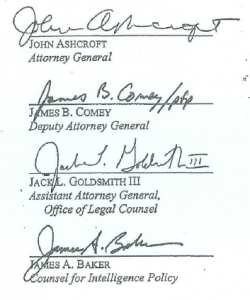 John Ashcroft
JOHN ASHCROFT
Attorney General
James B. Comey/ptp
JAMES B. COMEY
Deputy Attorney General
Jack L. Goldsmith III
JACK L. GOLDSMITH III
Assistant Attorney General,
Office of Legal Counsel
James A. Baker
JAMES A. BAKER
Counsel for Intelligence Policy